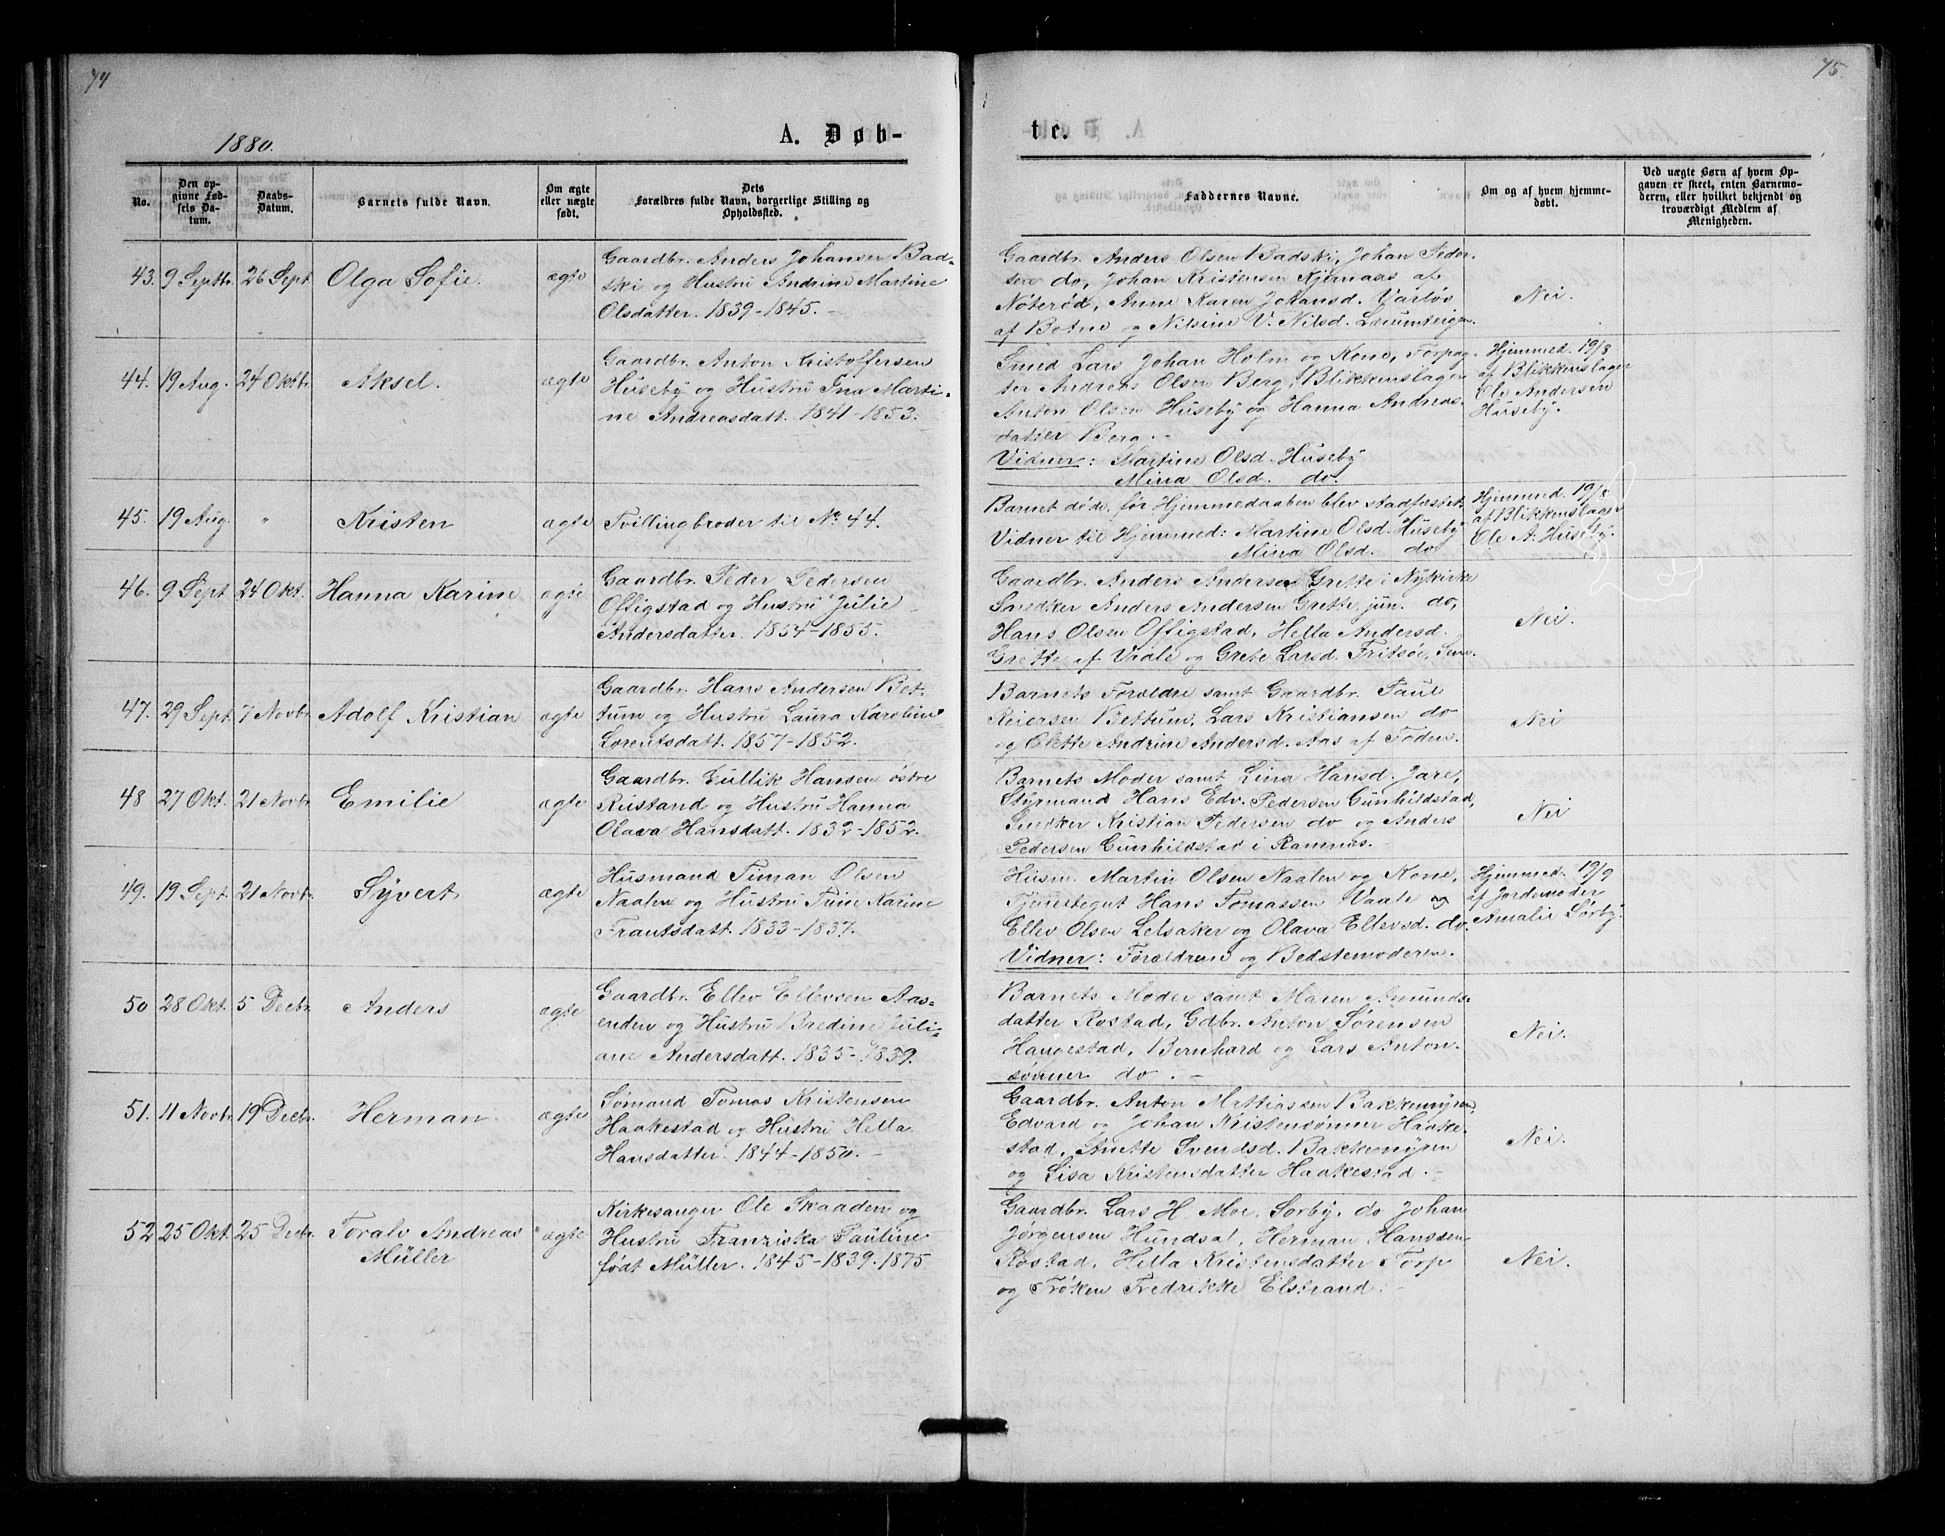 74
1880.
A. Døb-
No.
Den op-
givne Fød-
sels Da-
tum.
Daabs-
Datum.
Barnets fulde Navn.
Om ægte
eller uægte
født.
Dets
Forældres fulde Navn, borgerlige Stilling og
Opholdssted.
43. 9 Septbr. 26 Sept. Olga Sofie. ægte
Gaardbr. Anders Johansen Bad-
ski og Hustru Andrine Martine
Olsdatter. 1839-1845.
44. 19 Aug. 24 Oktbr. Aksel. ægte
Gaardbr. Anton Kristoffersen
Huseby og Hustru Ina Marti-
ne Andreasdatt. 1841-1853.
45. 19 Aug. " Kristen ægte Tvillingbroder til No 44.
46. 9 Sept 24 Okt. Hanna Karine ægte
Gaardbr. Peder Pedersen
Offigstad og Hustru Julie
Andersdatter. 1854-1855.
47. 29 Sept. 7 Novbr. Adolf Kristian ægte
Gaardbr. Hans Andersen Bet-
tum og Hustru Laura Karoline
Lorentsdatt. 1857-1852.
48 27 Okt. 21 Novbr. Emilie ægte
Gaardbr. Gullik Hansen østre
Rustand og Hustru Hanna
Olava Hansdatt. 1832-1852.
49. 19 Sept. 21 Novbr. Syvert. ægte
Husmand Timan Olsen
Naalen og Hustru Tine Karine
Frantsdatt. 1833-1837.
50 28 Okt. 5 Decbr. Anders ægte
Gaardbr. Ellev Ellevsen Aas-
enden og Hustru Bredine Juli-
ane Andersdatt. 1835-1839.
51. 11 Novbr. 19 Decbr. Herman. ægte
Sømand Tomas Kristensen
Haakestad og Hustru Hella
Hansdatter. 1844-1850.
52 25 Okt. 25 Decbr. Toralv Andreas
Müller ægte
Kirkesanger Ole Skaaden og
Hustru Franziska Pauline
født Müller. 1845-1839. 1875
75.
te.
Faddernes Navne.
Om og af hvem hjemme-
døbt.
Ved uægte Børn af hvem Op-
gaven er skeet, enten Barnemo-
deren, eller hvilket bekjendt og
troværdigt Medlem af
Menigheden.
Gaardbr. Anders Olsen Badski, Johan Peder-
sen do, Johan Kristensen Kjærnaas af
Nøterød, Anne Karen Johansd. Varløs
af Botne og Nilsine V. Nilsd.
Nei.
Smed Lars Johan Holm og Kone, Forpag-
ter Andreas Olsen Berg, Blikkenslager
Anton Olsen Huseby og Hanna Andreas-
datter Berg.
Vidner: Martine Olsd. Huseby
Mina Olsd. do.
Hjemmed. 19/8
af Blikkenslager
Ole Andersen
Huseby.
Barnet døde, før Hjemmedaaben blev stadfæstet.
Vidner til Hjemmed: Martine Olsd. Huseby
Mina Olsd. do
Hjemmed. 19/8
af Blikkenslager
Ole A. Huseby.
Gaardbr. Anders Andersen Grette i Nykirke
Snedker Anders Andersen Grette jun. do,
Hans Olsen Offigstad, Hella Andersd.
Grette af Vaale og Grete Larsd. Fritsøe, Sem.
Nei.
Barnets Forældre samt Gaardbr. Paul
Reiersen Bettum, Lars Kristiansen do
og Olette Andrine Andersd. Aas af Foden.
Nei
Barnets Moder samt Lina Hansd. Jare,
Styrmand Hans Edv. Pedersen Gunhildstad,
Snedker Kristian Pedersen do og Anders
Pedersen Gunhildstad i Ramnæs.
Nei
Husm. Martin Olsen Naalen og Kone,
Tjenestegut Hans Tomassen Vaale og
Ellev Olsen Lelsaker og Olava Ellevsd. do.
Vidner: Forældrene og Bedstemoderen.
Hjemmed. 19/9
af Jordemoder
Amalie Sørby.
Barnets Moder samt Maren Amunds-
datter Rostad, Gdbr. Anton Sørensen
Haugestad, Bernhard og Lars Anton-
sønner do.
Nei.
Gaardbr. Anton Mattiassen Bakkemyren,
Edvard og Johan Kristensønner Haake-
stad, Anette Svendsd. Bakkemyren
og Lisa Kristensdatter Haakestad.
Nei.
Gaardbr. Lars H Moe, Sørby, do Johan
Jørgensen Hundsal, Herman Hanssen
Rostad, Hella Kristensdatter Torp
og Frøken Fredrikke Elstrand.
Nei.